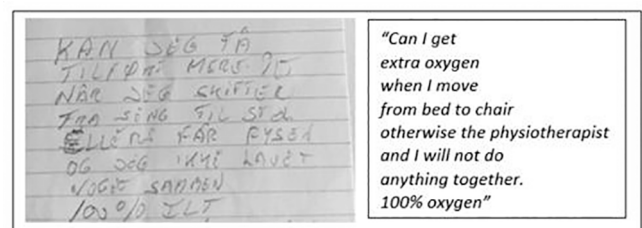 KAN JEG FÅ
TILFØRT MERE
NÅR JEG SKIFTER
FRA SENG TIL STOL
ELLERS FÅR FYSEN
OG JEG IKKE LAVET
NOGET SAMMEN
100% ILT
“Can I get
extra oxygen
when I move
from bed to chair
otherwise the physiotherapist
and I will not do
anything together.
100% oxygen”